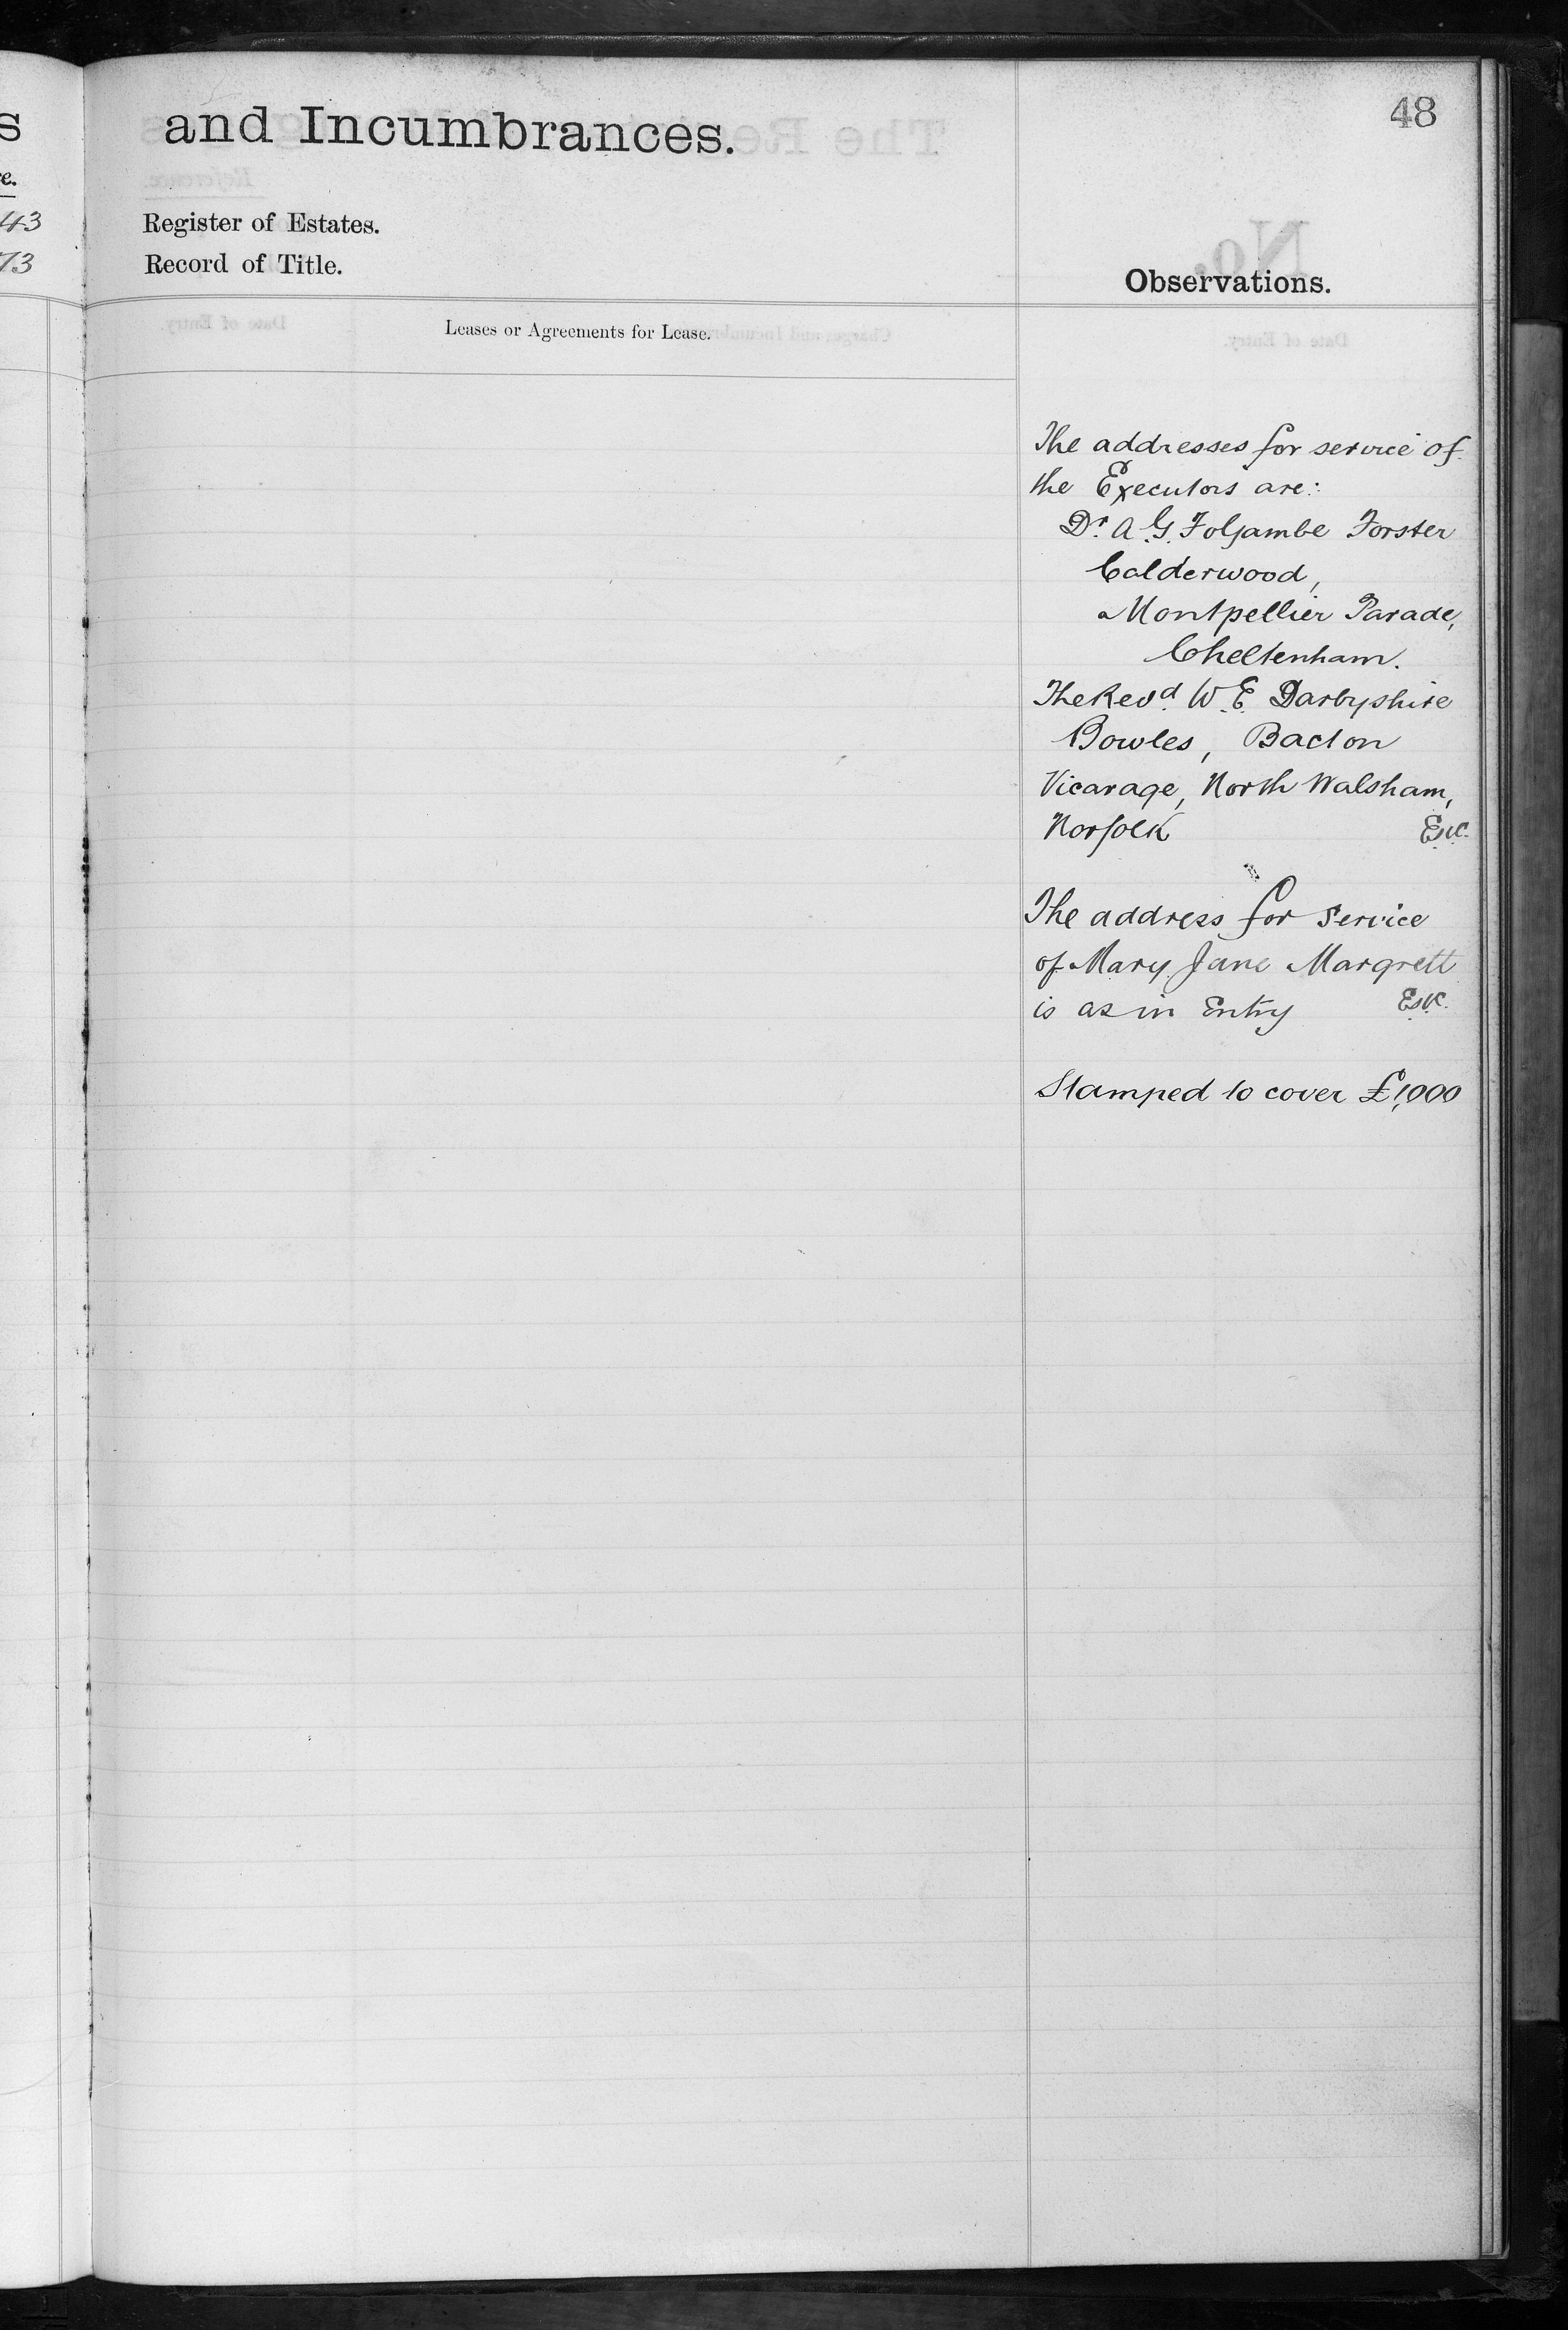 48
and Incumbrances.
s
e.
43
73
Register of Estates.
Record of Title.
Observations.
Leases or Agreements for Lease.
The addresses for service of
the Executors are:
Dr. A. G. Foljambe Forster
Calderwood,
Montpellier Parade,
Cheltenham.
The Revd. W. E. Darbyshire
Bowles, Bacton
Vicarage, North Walsham,
Norfolk
The address for service
of Mary Jane Margrett
is as in Entry
Stamped to cover £1,000